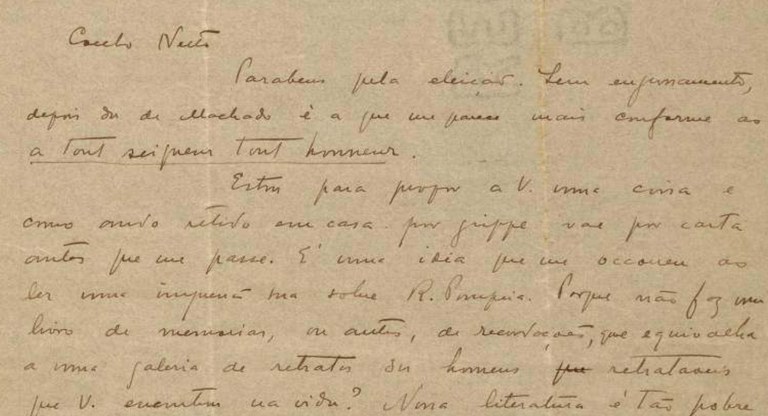 Coelho Netto
Parabens pela eleição. Sem engrossamento,
depois da de Machado é a que me parece mais conforme ao
a tout seigneur tout honneur.
Estou para propor a V. uma coisa e
como ando retido em casa por grippe vae por carta
antes que me passe. É uma idéa que me occorreu ao
ler uma sua sobre R. Pompeia. Porque não faz um
livro de memorias, ou antes, de recordações, que equivalha
a uma galeria de retratos dos homens que retrataveis
que V. encontrou na vida? Nossa literatura é tão pobre